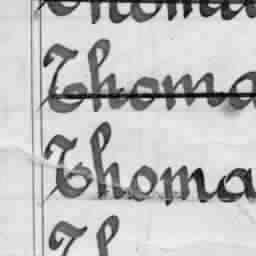 Thoma
Thoma
Thoma
Th